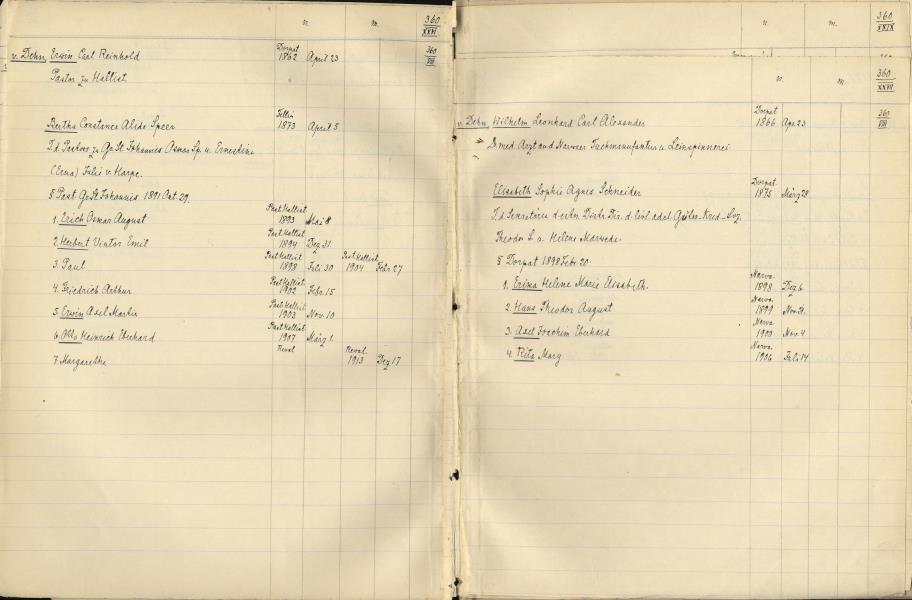 n. m. 360
XXVI
v. Dehn, Erwin Carl Reinhold Dorpat 1862 April 23 360
VII
Pastor zu Hallist
Bertha Constance Alide Speer Fellin 1873 April 5
T. d. Pastors zu Gr. St. Johannis Oskar Sp. u. Ernestine
(Erna) Julie v. Harpe.
§ Past. Gr. St. Johannis 1891 Oct. 29.
1. Erich Oskar August Past. Hallist 1893 Mai 8
2. Herbert Victor Emil Past. Hallist 1894 Dez 31.
3. Paul Past. Hallist 1898 Juli 30 Past. Hallist 1904 Febr. 27
4. Friedrich Arthur Past. Hallist 1902 Febr. 15
5. Erwin Axel Martin Past. Hallist 1903 Nov. 10
6. Otto Heinrich Eberhard Past. Hallist 1907 März 1.
7. Margarethe Reval Reval 1913 Dez 17
n. m. 360
XXIX
n. m. 360
XXVII
v. Dehn, Wilhelm Leonhard Carl Alexander Dorpat 1866 Apr. 23 360
VII
D. med. Arzt and Narvaer Tuchmanufaktur u. Leinspinnerei
Elisabeth Sophie Agnes Schneider Dorpat 1875 März 28
T. d. Secretären d. estn. Distr. Dir. d. livl. adel. Güter-Kred.-Soz.
Theodor S. u. Helene
§ Dorpat 1898 Febr. 20.
1. Erika Helene Marie Elisabeth. Narva 1898 Dez 6
2. Hans Theodor August Narva 1899 Nov.
3. Axel Joachim Eberhard Narva 1903 Nov. 4
4. Rita Mary Narva 1906 Juli 14